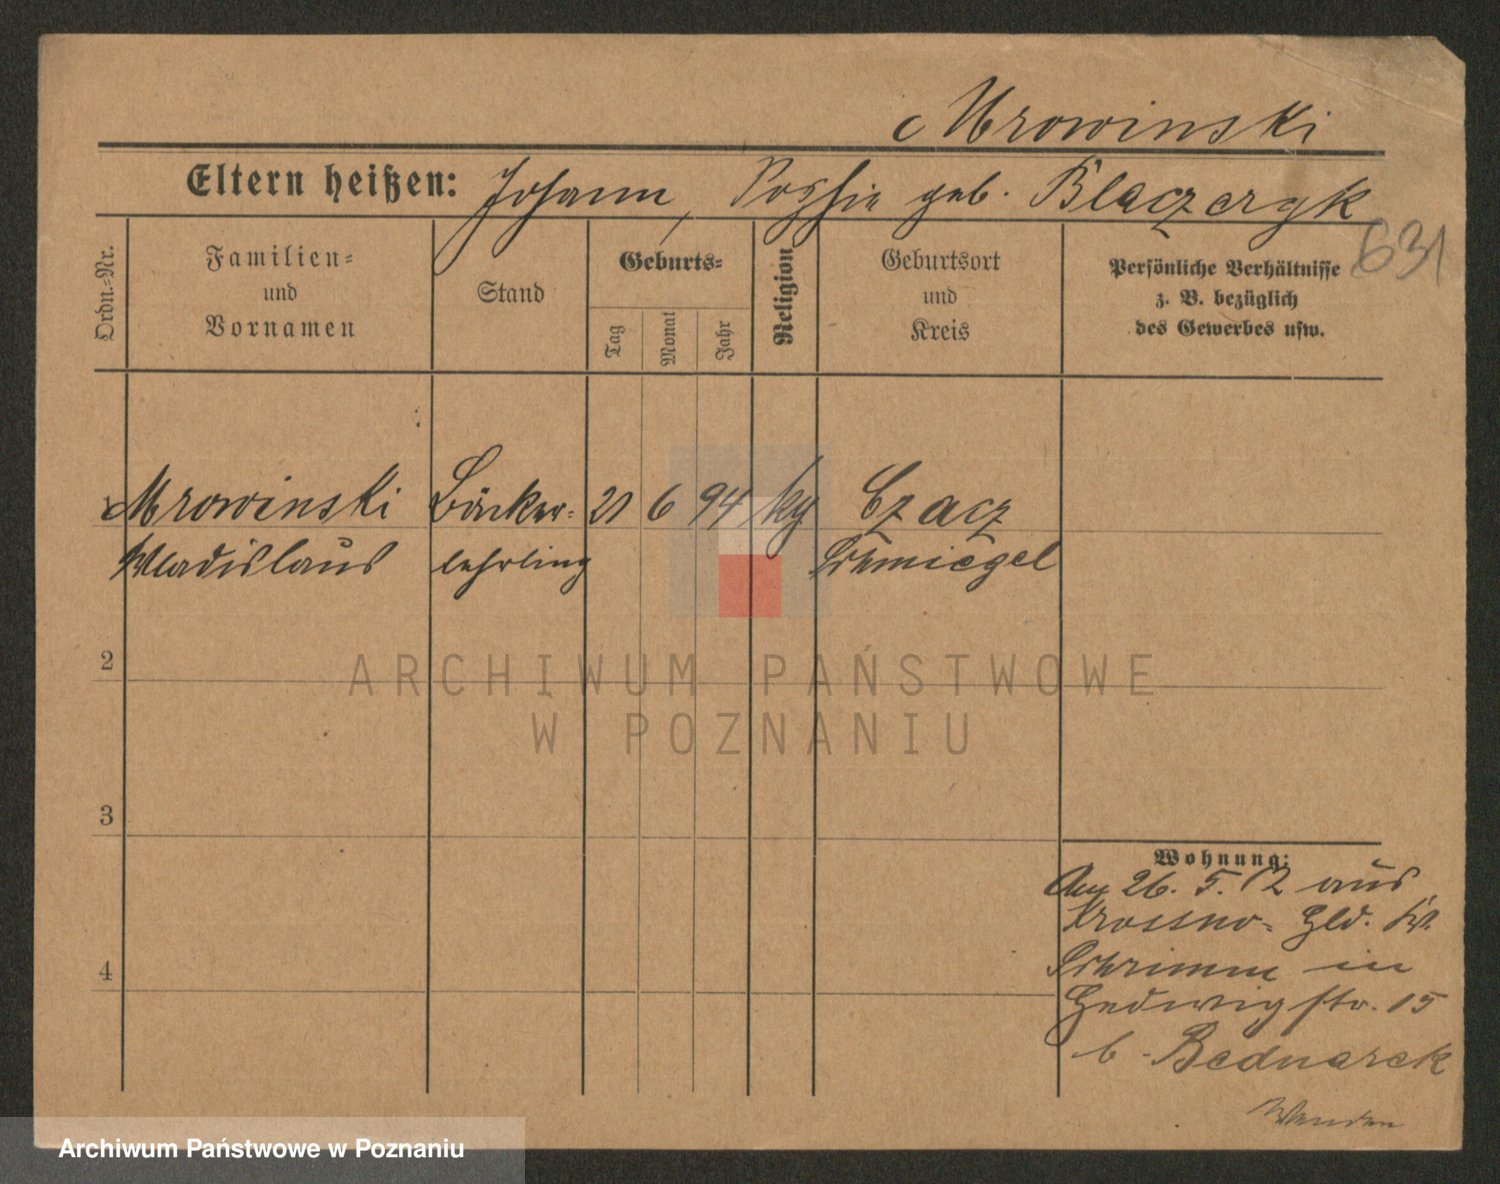 Mrowinski
Eltern heißen: Johann, Sophie geb. Blaczezyk
631
Ordn.=Nr.
Familien=
und
Vornamen
Stand
Geburts=
Tag
Monat
Jahr
Religion
Geburtsort
und
Kreis
Persönliche Verhältnisse
z. B. bezüglich
des Gewerbes usw.
Mrowinski Bäcker= 21 6 94 kg Czacz
Wladislaus lehrling Schmiegel
2
ARCHIWUM PAŃSTWOWE
W POZNANIU
3
Wohnung:
Am 26. 5. 12 aus
Krossno= Hld. Kr.
Schrimm in
Hedwigstr. 15
b. Bednarek
Wenden
4
Archiwum Państwowe w Poznaniu